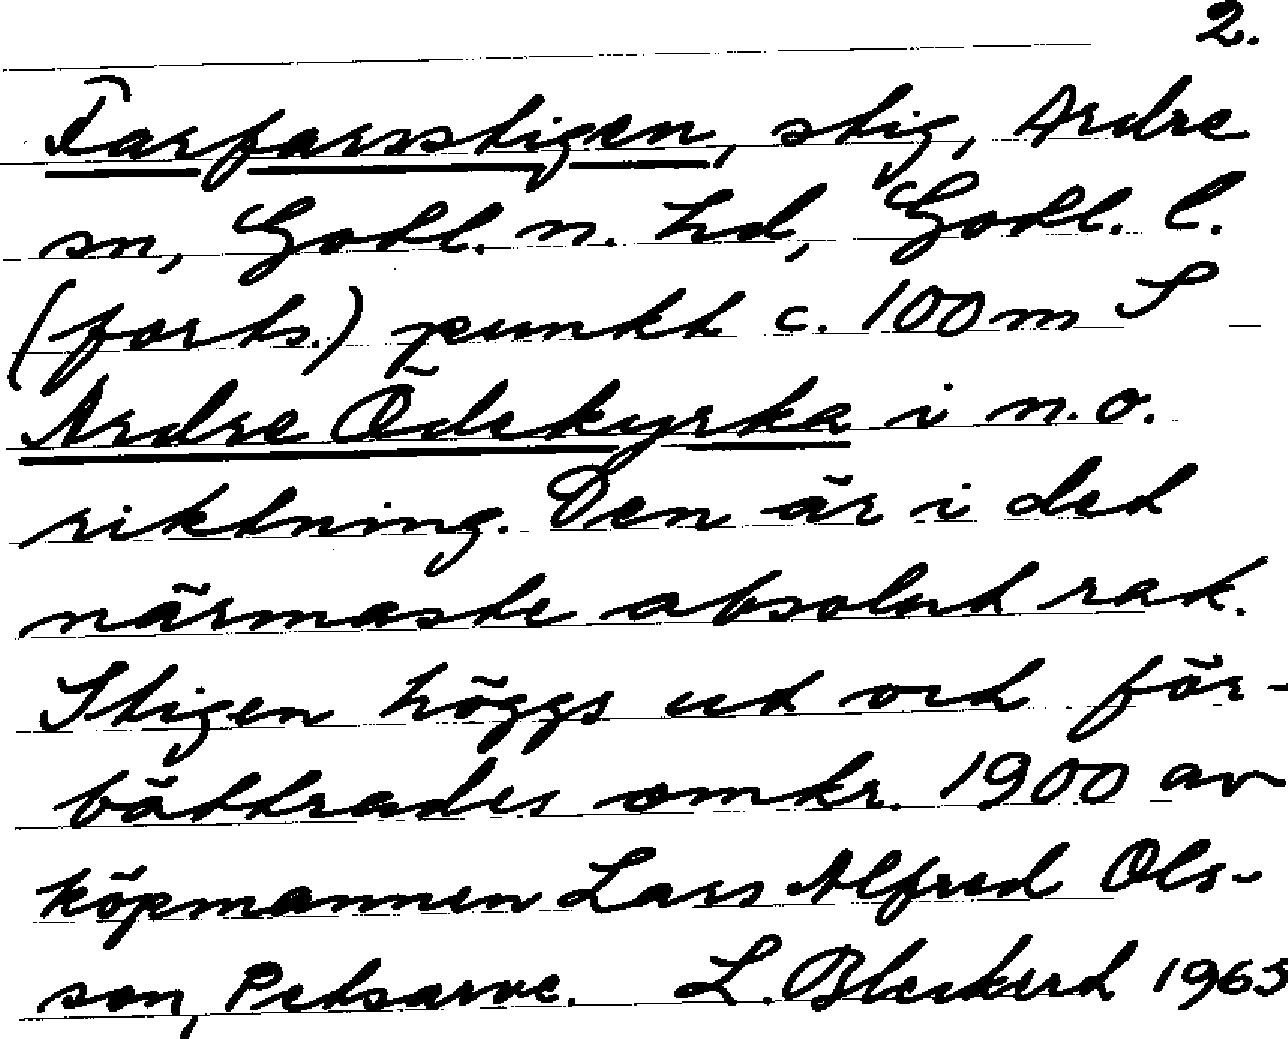 2.
Farfarsstigen, stig, Ardre
sn, Gotl. n. hd, Gotl. l.
(forts.) punkt c. 100 m S
Ardre Ödekyrka i n.o.
riktning. Den är i det
närmaste absolut rak.
Stigen höggs ut och för-
bättrades omkr. 1900 av
köpmannen Lars Alfred Ols-
son, Petsarve. L. Bleckert 1965